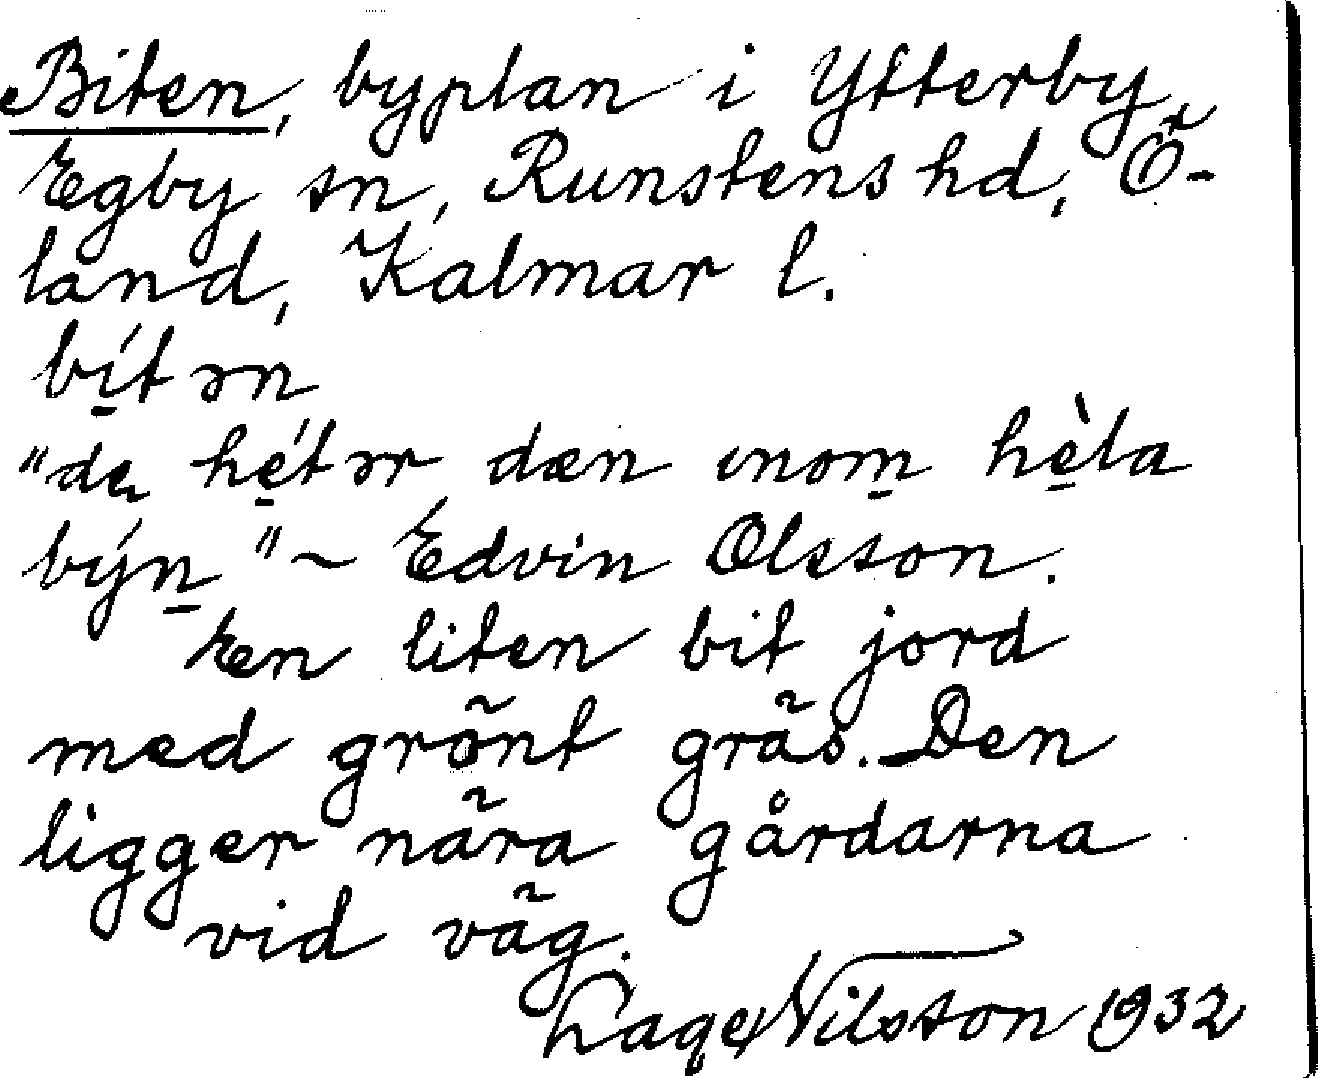 Biten, byplan i Ytterby,
Egby sn, Runstens hd, Ö-
land, Kalmar l.
bí̠tən
"dę hé̠tər dæn ınom̠ hè̠la
býn̠" ~ Edvin Olsson.
En liten bit jord
med grönt gräs. Den
ligger nära gårdarna
vid väg.
Lage Nilsson 1932